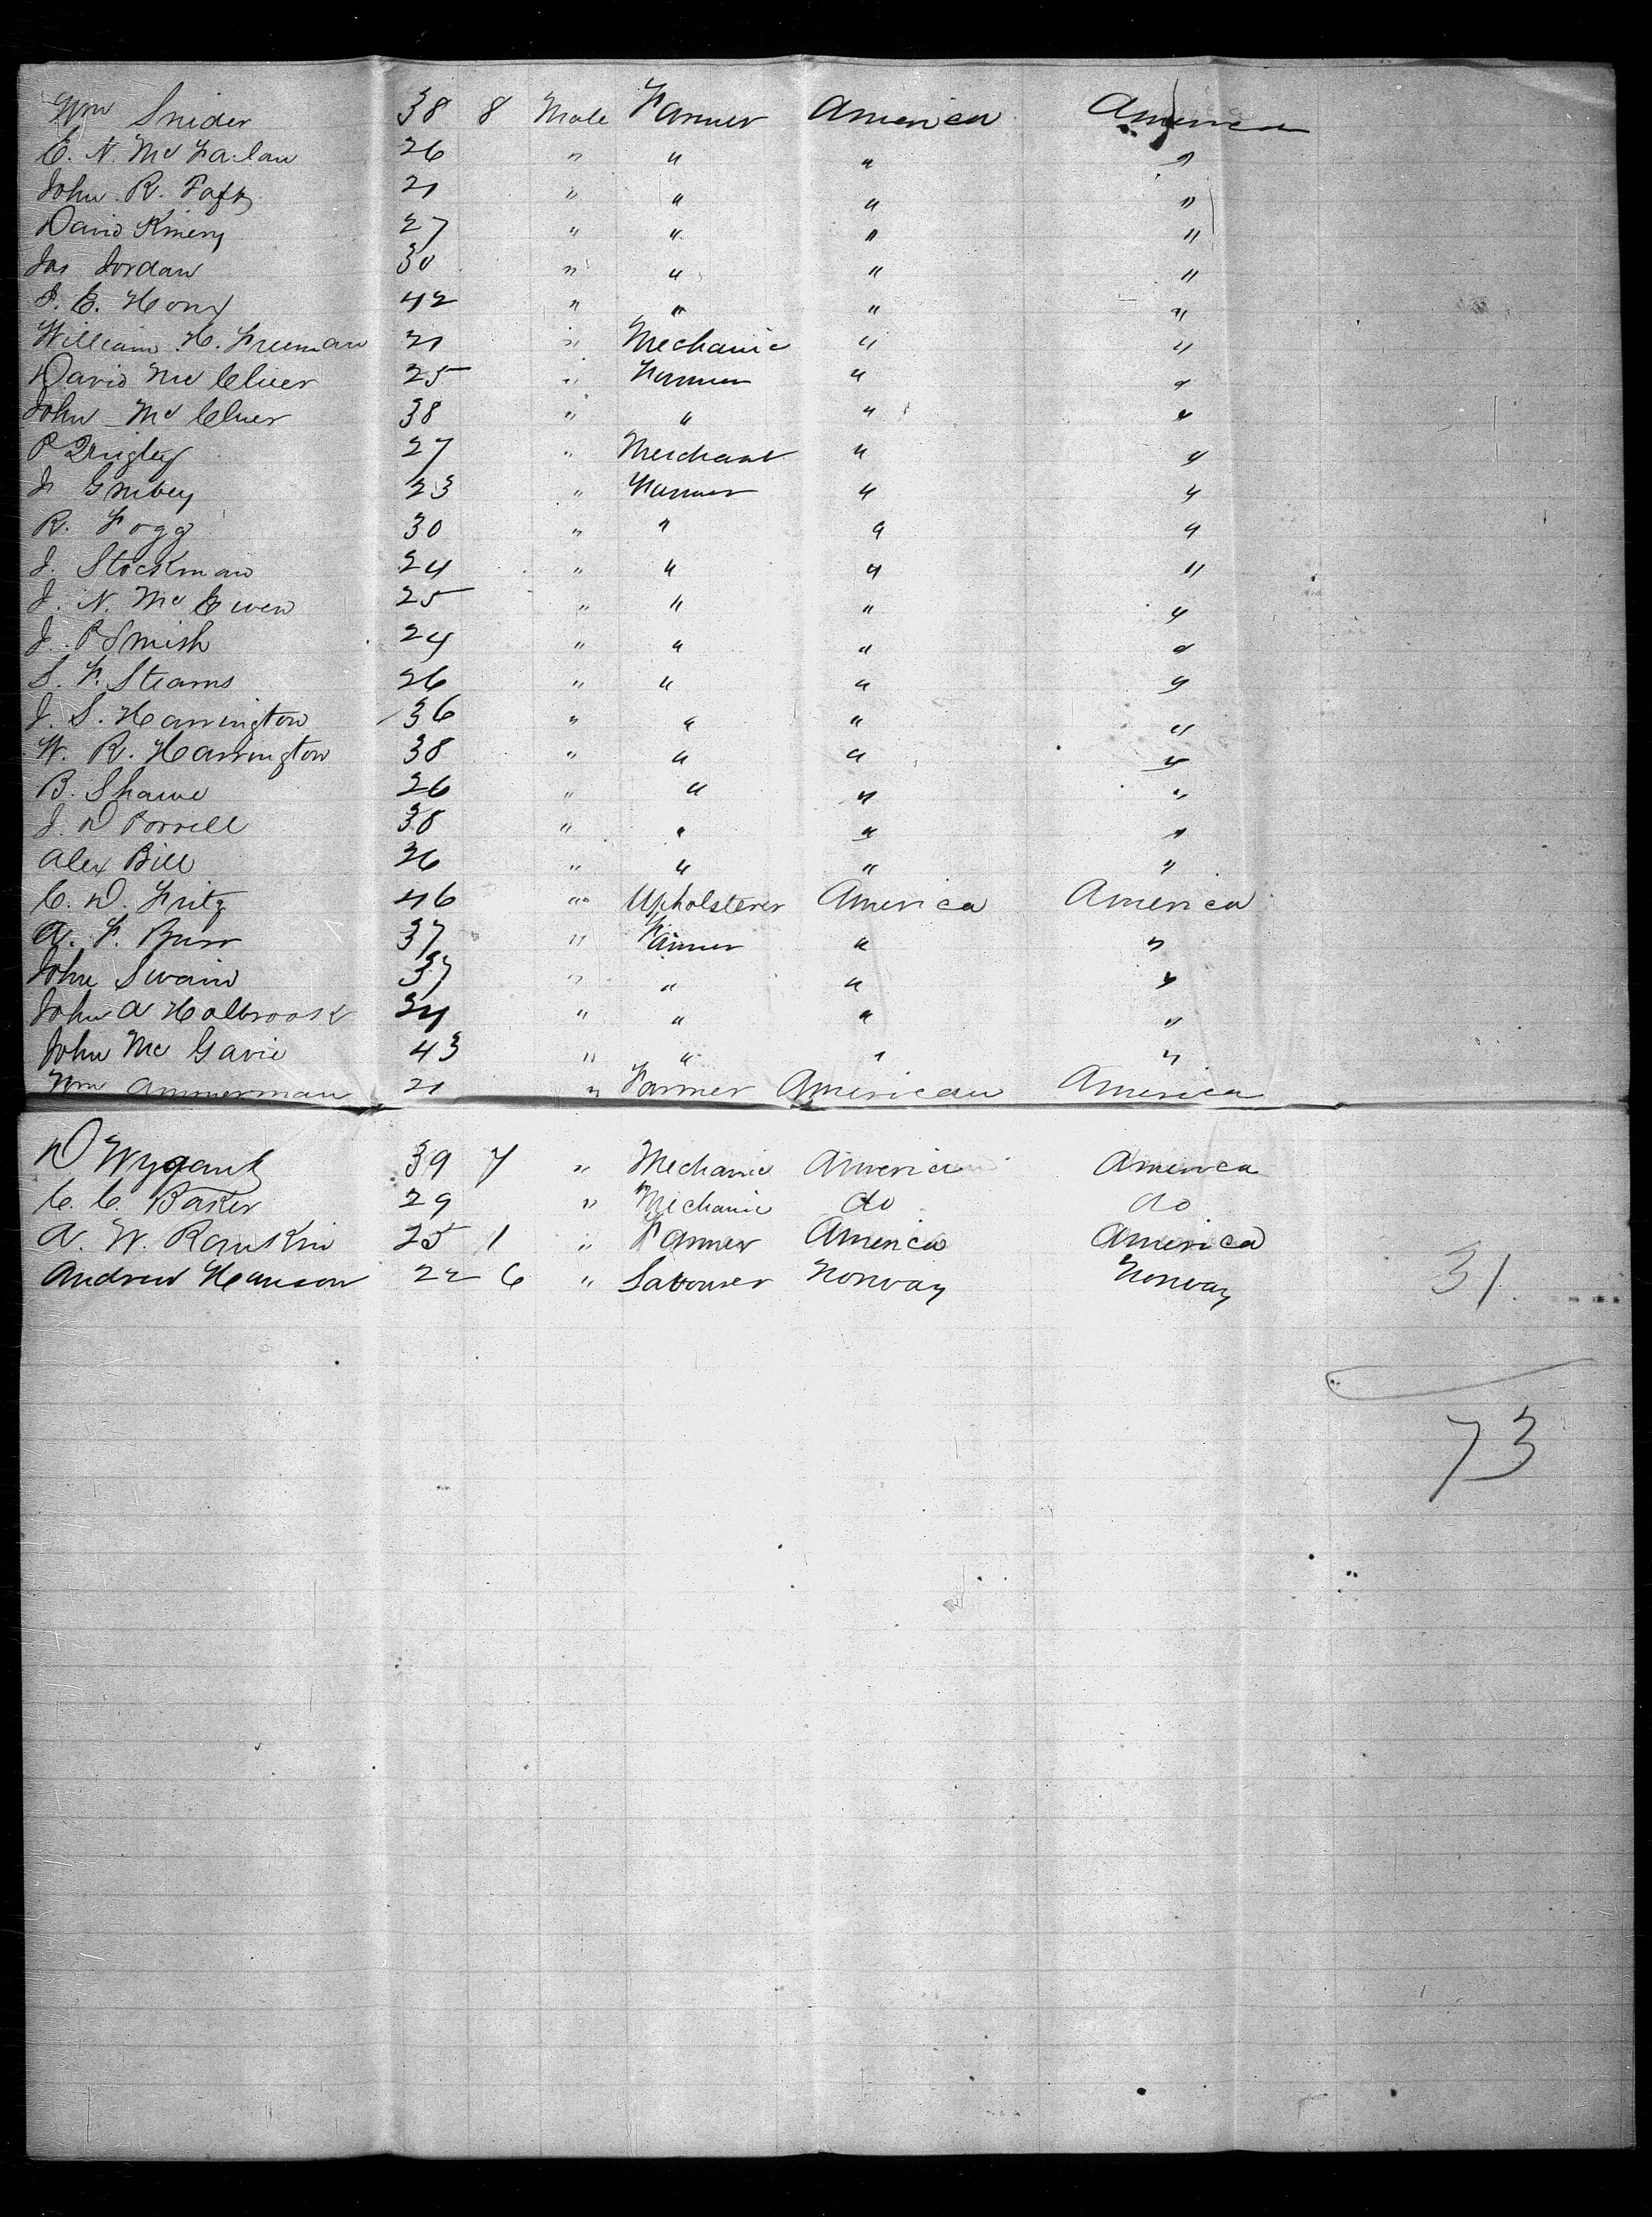 Wm Snider 38 8 Male Farmer America America
E. N. Mc Falan 26 " " " "
John R. 21 " " " "
David Kinery 27 " " " "
Jas Jordan 30 " " " "
42 " " " "
William H. Freeman 21 " Mechanic " "
David Mc Cluer 25 " Farmer " "
John Mc Cluer 38 " " " "
P Quigley 27 " Merchant " "
23 " Farmer " "
R. Fogg 30 " " " "
J. Stockman 24 " " " "
J. N. Mc Ewen 25 " " " "
J. P Smith 24 " " " "
S. F. Stearns 26 " " " "
J. S. Harrington 36 " " " "
W. R. Harrington 38 " " " "
B. Shawe 26 " " " "
J. D Porrell 38 " " " "
Alex Bill 26 " " " "
C. D. Fritz 46 " Upholsterer America America
A. F. Burr 37 " Farmer " "
John Swain 37 " " " "
John A Holbrook 34 " " " "
John Mc Gavie 43 " " " "
Wm Ammerman 21 " Farmer American America
D Wygant 39 7 " Mechanic America America
C. C. Baker 29 " Mechanic do do
A. W. Rankin 25 1 " Farmer America America
Andrew Hanson 22 6 " Labourer Norway Norway
31.
73